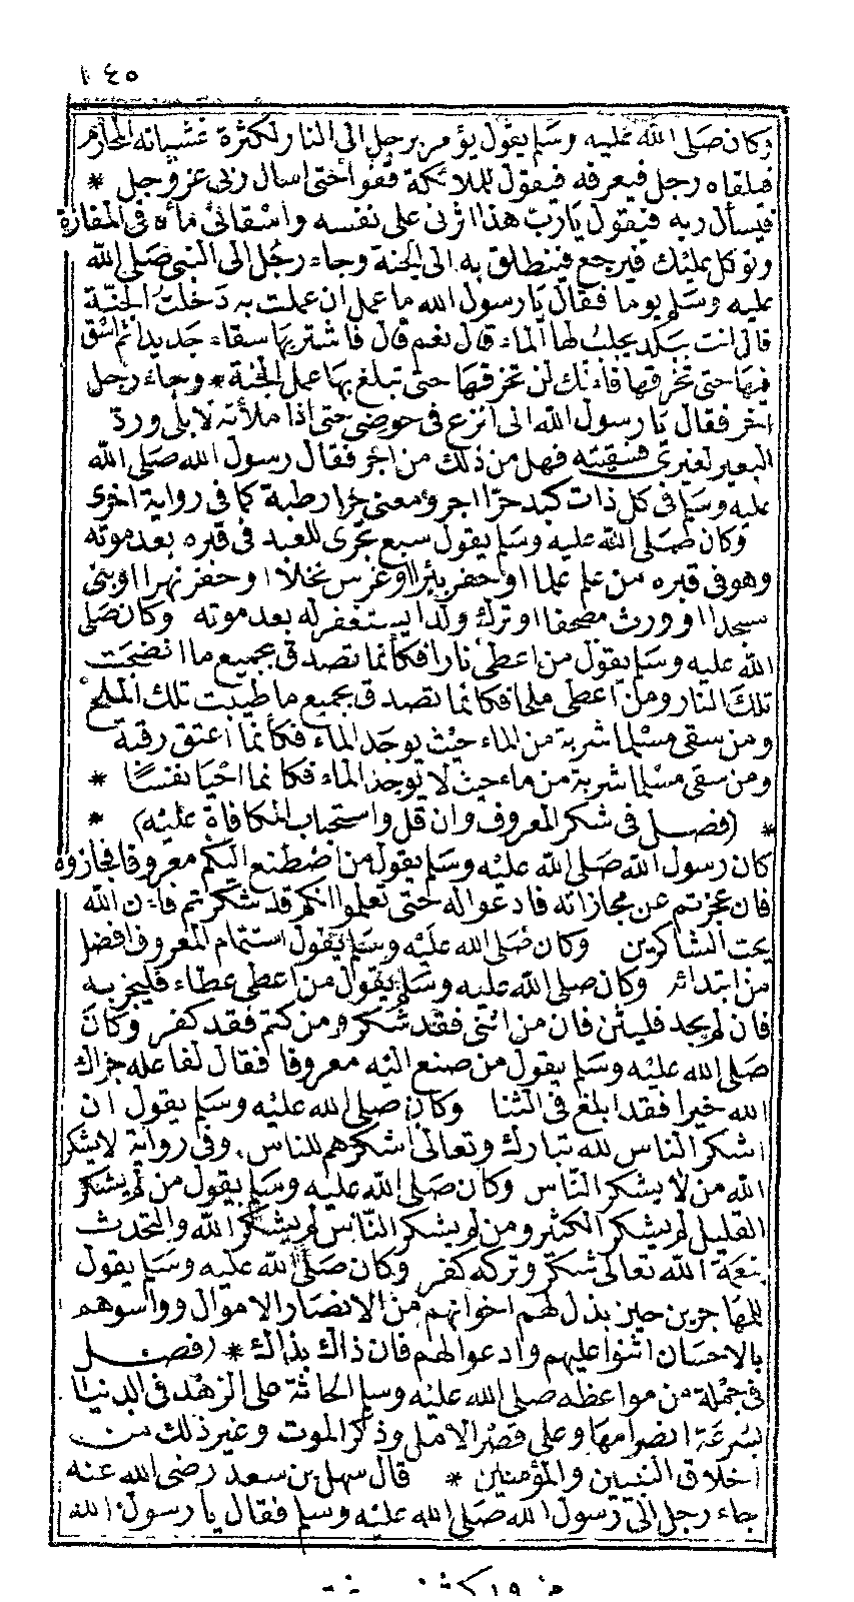 ١٤٥
وكان صلى الله عليه وسلم يقول يؤمر برجل الى النار لكثرة غشيانه المحارم
فيلقاه رجل فيعرفه فيقول للملائكة قفوا حتى اسال ربى عز وجل *
فيسأل ربه فيقول يارب هذا اثرنى على نفسه واسقانى ماءه فى المفازة
وتوكل عليك فيرجع فينطلق به الى الجنة وجاء رجل الى النبى صلى الله
عليه وسلم يوما فقال يا رسول الله ما عمل ان عملت به دخلت الجنة
قال انت ببلد يجلب لها الماء قال نعم قال فاشتر بها سقاء جديدا ثم اسق
فيها حتى تخرقها فانك لن تخرقها حتى تبلغ بها عمل الجنة * وجاء رجل
اخر فقال يا رسول الله انى انزع فى حوضى حتى اذا ملأته لابلى ورد
البعير لغيرى فسقيته فهل من ذلك من اجر فقال رسول الله صلى الله
عليه وسلم فى كل ذات كبد حرا اجر ومعنى حرا رطبة كما فى رواية اخرى
وكان صلى الله عليه وسلم يقول سبع تجرى للعبد فى قبره بعد موته
وهو فى قبره من علم علما او حفر بئرا او غرس نخلا او حفر نهرا او بنى
مسجدا او ورث مصحفا او ترك ولدا يستغفر له بعد موته وكان صلى
الله عليه وسلم يقول من اعطى نارا فكأنما تصدق بجميع ما انضجت
تلك النار ومن اعطى ملحا فكانما تصدق بجميع ما طيبت تلك الملح
ومن سقى مسلما شربة من الماء حيث يوجد الماء فكأنما اعتق رقبة
ومن سقى مسلما شربة من ماء حيث لا يوجد الماء فكانما احيا نفسا *
* (فصل فى شكر المعروف وان قل واستحباب المكافاة عليه) *
كان رسول الله صلى الله عليه وسلم يقول من اصطنع اليكم معروفا فجازوه
فان عجزتم عن مجازاته فادعوا له حتى تعلموا انكم قد شكرتم فان الله
يحب الشاكرين وكان صلى الله عليه وسلم يقول استتمام المعروف افضل
من ابتدائه وكان صلى الله عليه وسلم يقول من اعطى عطاء فليجز به
فان لم يجد فليثن فان من اثنى فقد شكر ومن كتم فقد كفر وكان
صلى الله عليه وسلم يقول من صنع اليه معروفا فقال لفاعله جزاك
الله خيرا فقد ابلغ فى الثنا وكان صلى الله عليه وسلم يقول ان
اشكر الناس لله تبارك وتعالى اشكرهم للناس وفى رواية لا يشكر
الله من لا يشكر الناس وكان صلى الله عليه وسلم يقول من لم يشكر
القليل لم يشكر الكثير ومن لم يشكر الناس لم يشكر الله والتحدث
بنعمة الله تعالى شكر وتركه كفر وكان صلى الله عليه وسلم يقول
للمهاجرين حين بذل لهم اخوانهم من الانصار الاموال وواسوهم
بالاحسان اثنوا عليهم وادعوا لهم فان ذاك بذاك * (فصل
فى جملة من مواعظه صلى الله عليه وسلم الحاثة على الزهد فى الدنيا
بسرعة انصرامها وعلى قصر الامل وذكر الموت وغير ذلك من
اخلاق النبيين والمؤمنين * قال سهل بن سعد رضى الله عنه
جاء رجل الى رسول الله صلى الله عليه وسلم فقال يا رسول الله